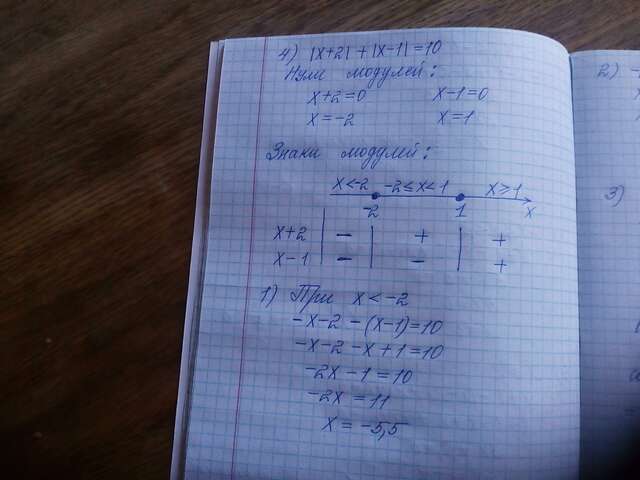 4) |x+2| + |x-1| = 10
Нули модулей:
x+2=0 x-1=0
x=-2 x=1
Знаки модулей:
x<-2 -2≤x<1 x≥1
-2 1 x
x+2 | - | + | +
x-1 | - | - | +
1) При x<-2
-x-2-(x-1)=10
-x-2-x+1=10
-2x-1=10
-2x=11
x=-5,5
2) -
3)